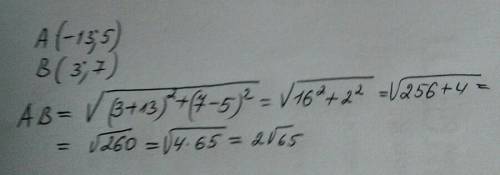 A(-13;5)
B(3;7)
AB = √((3+13)²+(7-5)²) = √(16²+2²) = √(256+4) =
= √260 = √(4·65) = 2√65